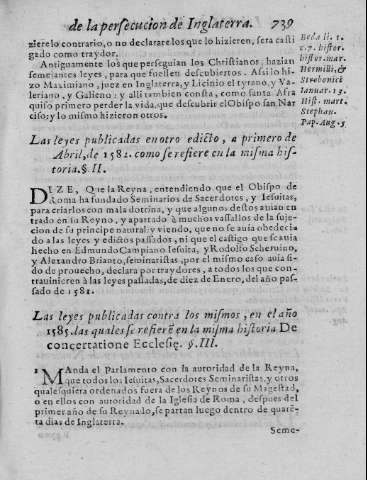 de la persecucion de Inglaterra. 739
ziere lo contrario, o no declarare los que lo hizieren, sera casti
gado como traydor.
Antiguamente los que perseguian los Christianos, hazian
semejantes leyes, para que fuessen descubiertos. Assi lo hi-
zo Maximiano, juez en Inglaterra, y Licinio el tyrano, y Va-
leriano, y Galieno: y alli tambien consta, como santa Afra
quiso primero perder la vida, que descubrir el Obispo san Nar
ciso; y lo mismo hizieron otros.
Beda li. 1.
c. 7. histor.
histor. mar.
Hermilli, &
Stratonici
Ianuar. 13.
Hist. mart.
Stephan.
Pap. Aug. 5
Las leyes publicadas en otro edicto, a primero de
Abril, de 1582. como se refiere en la misma his-
toria. § II.
DIZE, Que la Reyna, entendiendo que el Obispo de
Roma ha fundado Seminarios de Sacerdotes, y Iesuitas,
para criarlos con mala dotrina, y que algunos destos auian en
trado en su Reyno, y apartado à muchos vassallos de la suje-
cion de su principe natural: y viendo, que no se auia obedeci-
do a las leyes y edictos passados, ni que el castigo que se auia
hecho en Edmundo Campiano Iesuita, y Rodolfo Scheruino,
y Alexandro Brianto, seminaristas, por el mismo caso auia si-
do de prouecho, declara por traydores, a todos los que con-
trauinieren à las leyes passadas, de diez de Enero, del año pas-
sado de 1581.
Las leyes publicadas contra los mismos, en el año
1585. las quales se refierē en la misma historia De
concertatione Ecclesię. §. III.
1 MAnda el Parlamento con la autoridad de la Reyna,
que todos los Iesuitas, Sacerdotes Seminaristas, y otros
qualesquiera ordenados fuera de los Reynos de su Magestad,
o en ellos con autoridad de la Iglesia de Roma, despues del
primer año de su Reynado, se partan luego dentro de quarē-
ta dias de Inglaterra.
Seme-